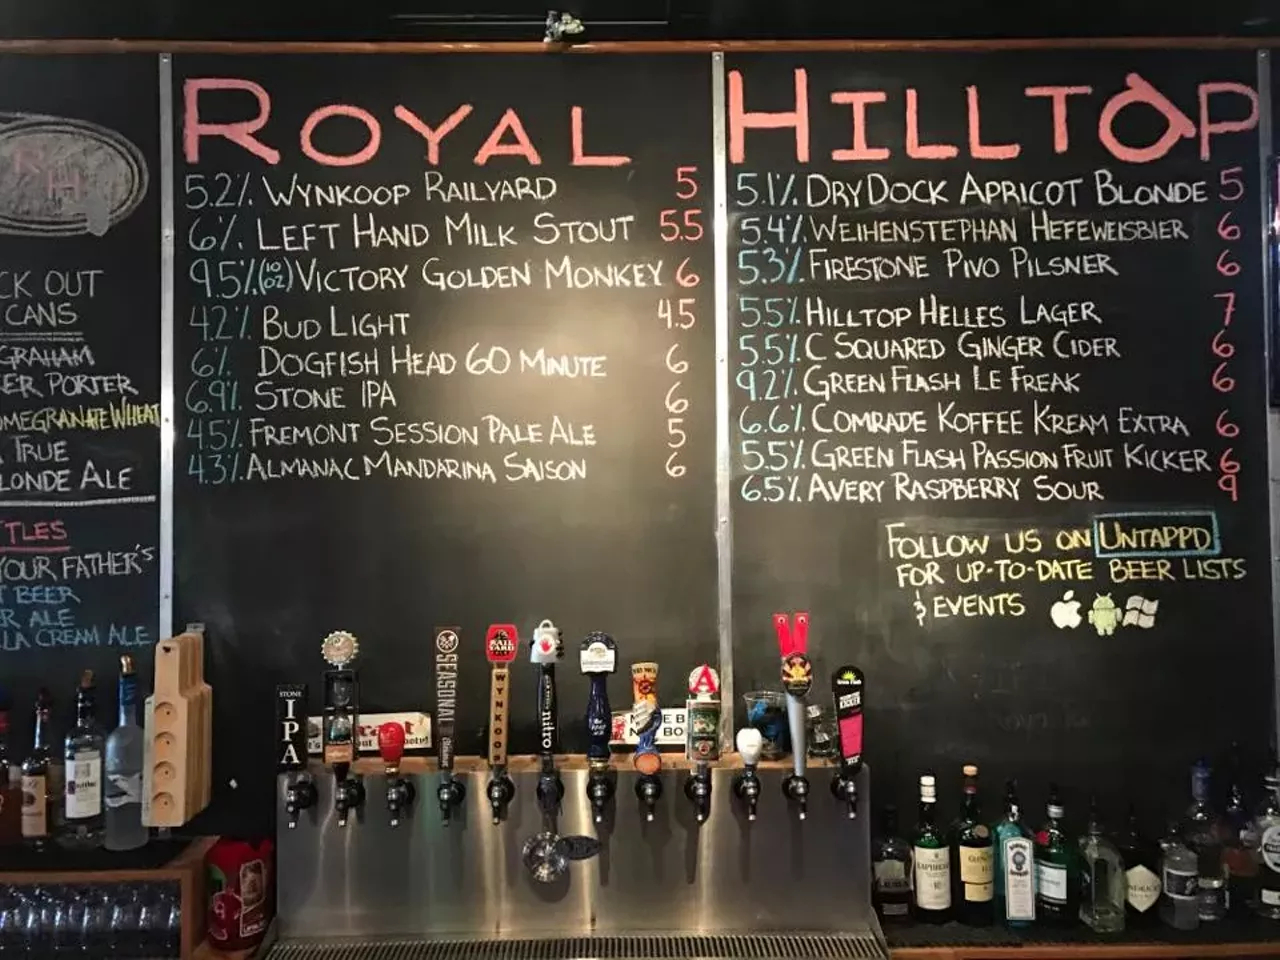 RH
CK OUT
CANS
GRAHAM
ER PORTER
OMEGRANATE WHEAT
TRUE
LONDE ALE
TLES
YOUR FATHER'S
T BEER
R ALE
LA CREAM ALE
ROYAL
5.2% WYNKOOP RAILYARD 5
6% LEFT HAND MILK STOUT 5.5
9.5% (10 OZ) VICTORY GOLDEN MONKEY 6
4.2% BUD LIGHT 4.5
6% DOGFISH HEAD 60 MINUTE 6
6.9% STONE IPA 6
4.5% FREMONT SESSION PALE ALE 5
4.3% ALMANAC MANDARINA SAISON 6
HILLTOP
5.1% DRYDOCK APRICOT BLONDE 5
5.4% WEIHENSTEPHAN HEFEWEISBIER 6
5.3% FIRESTONE PIVO PILSNER 6
5.5% HILLTOP HELLES LAGER 7
5.5% C SQUARED GINGER CIDER 6
9.2% GREEN FLASH LE FREAK 6
6.6% COMRADE KOFFEE KREAM EXTRA 6
5.5% GREEN FLASH PASSION FRUIT KICKER 6
6.5% AVERY RASPBERRY SOUR 9
FOLLOW US ON UNTAPPD
FOR UP-TO-DATE BEER LISTS
& EVENTS
STONE
IPA
SEASONAL
RAIL YARD
WYNKOOP
nitro
A